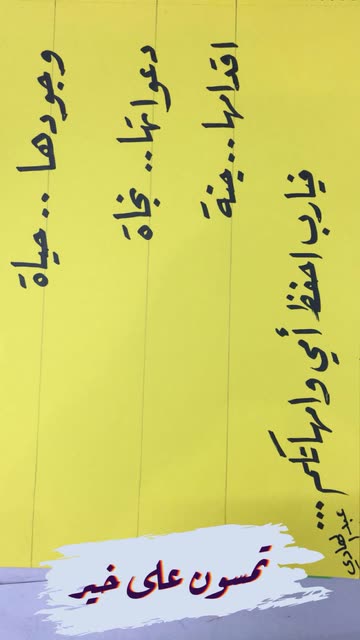 وجودها .. حياة
دعواتها .. نجاة
اقدامها .. جنة
فيارب احفظ أمي وامهاتكم ...
عبدالهادي
تمسون على خير